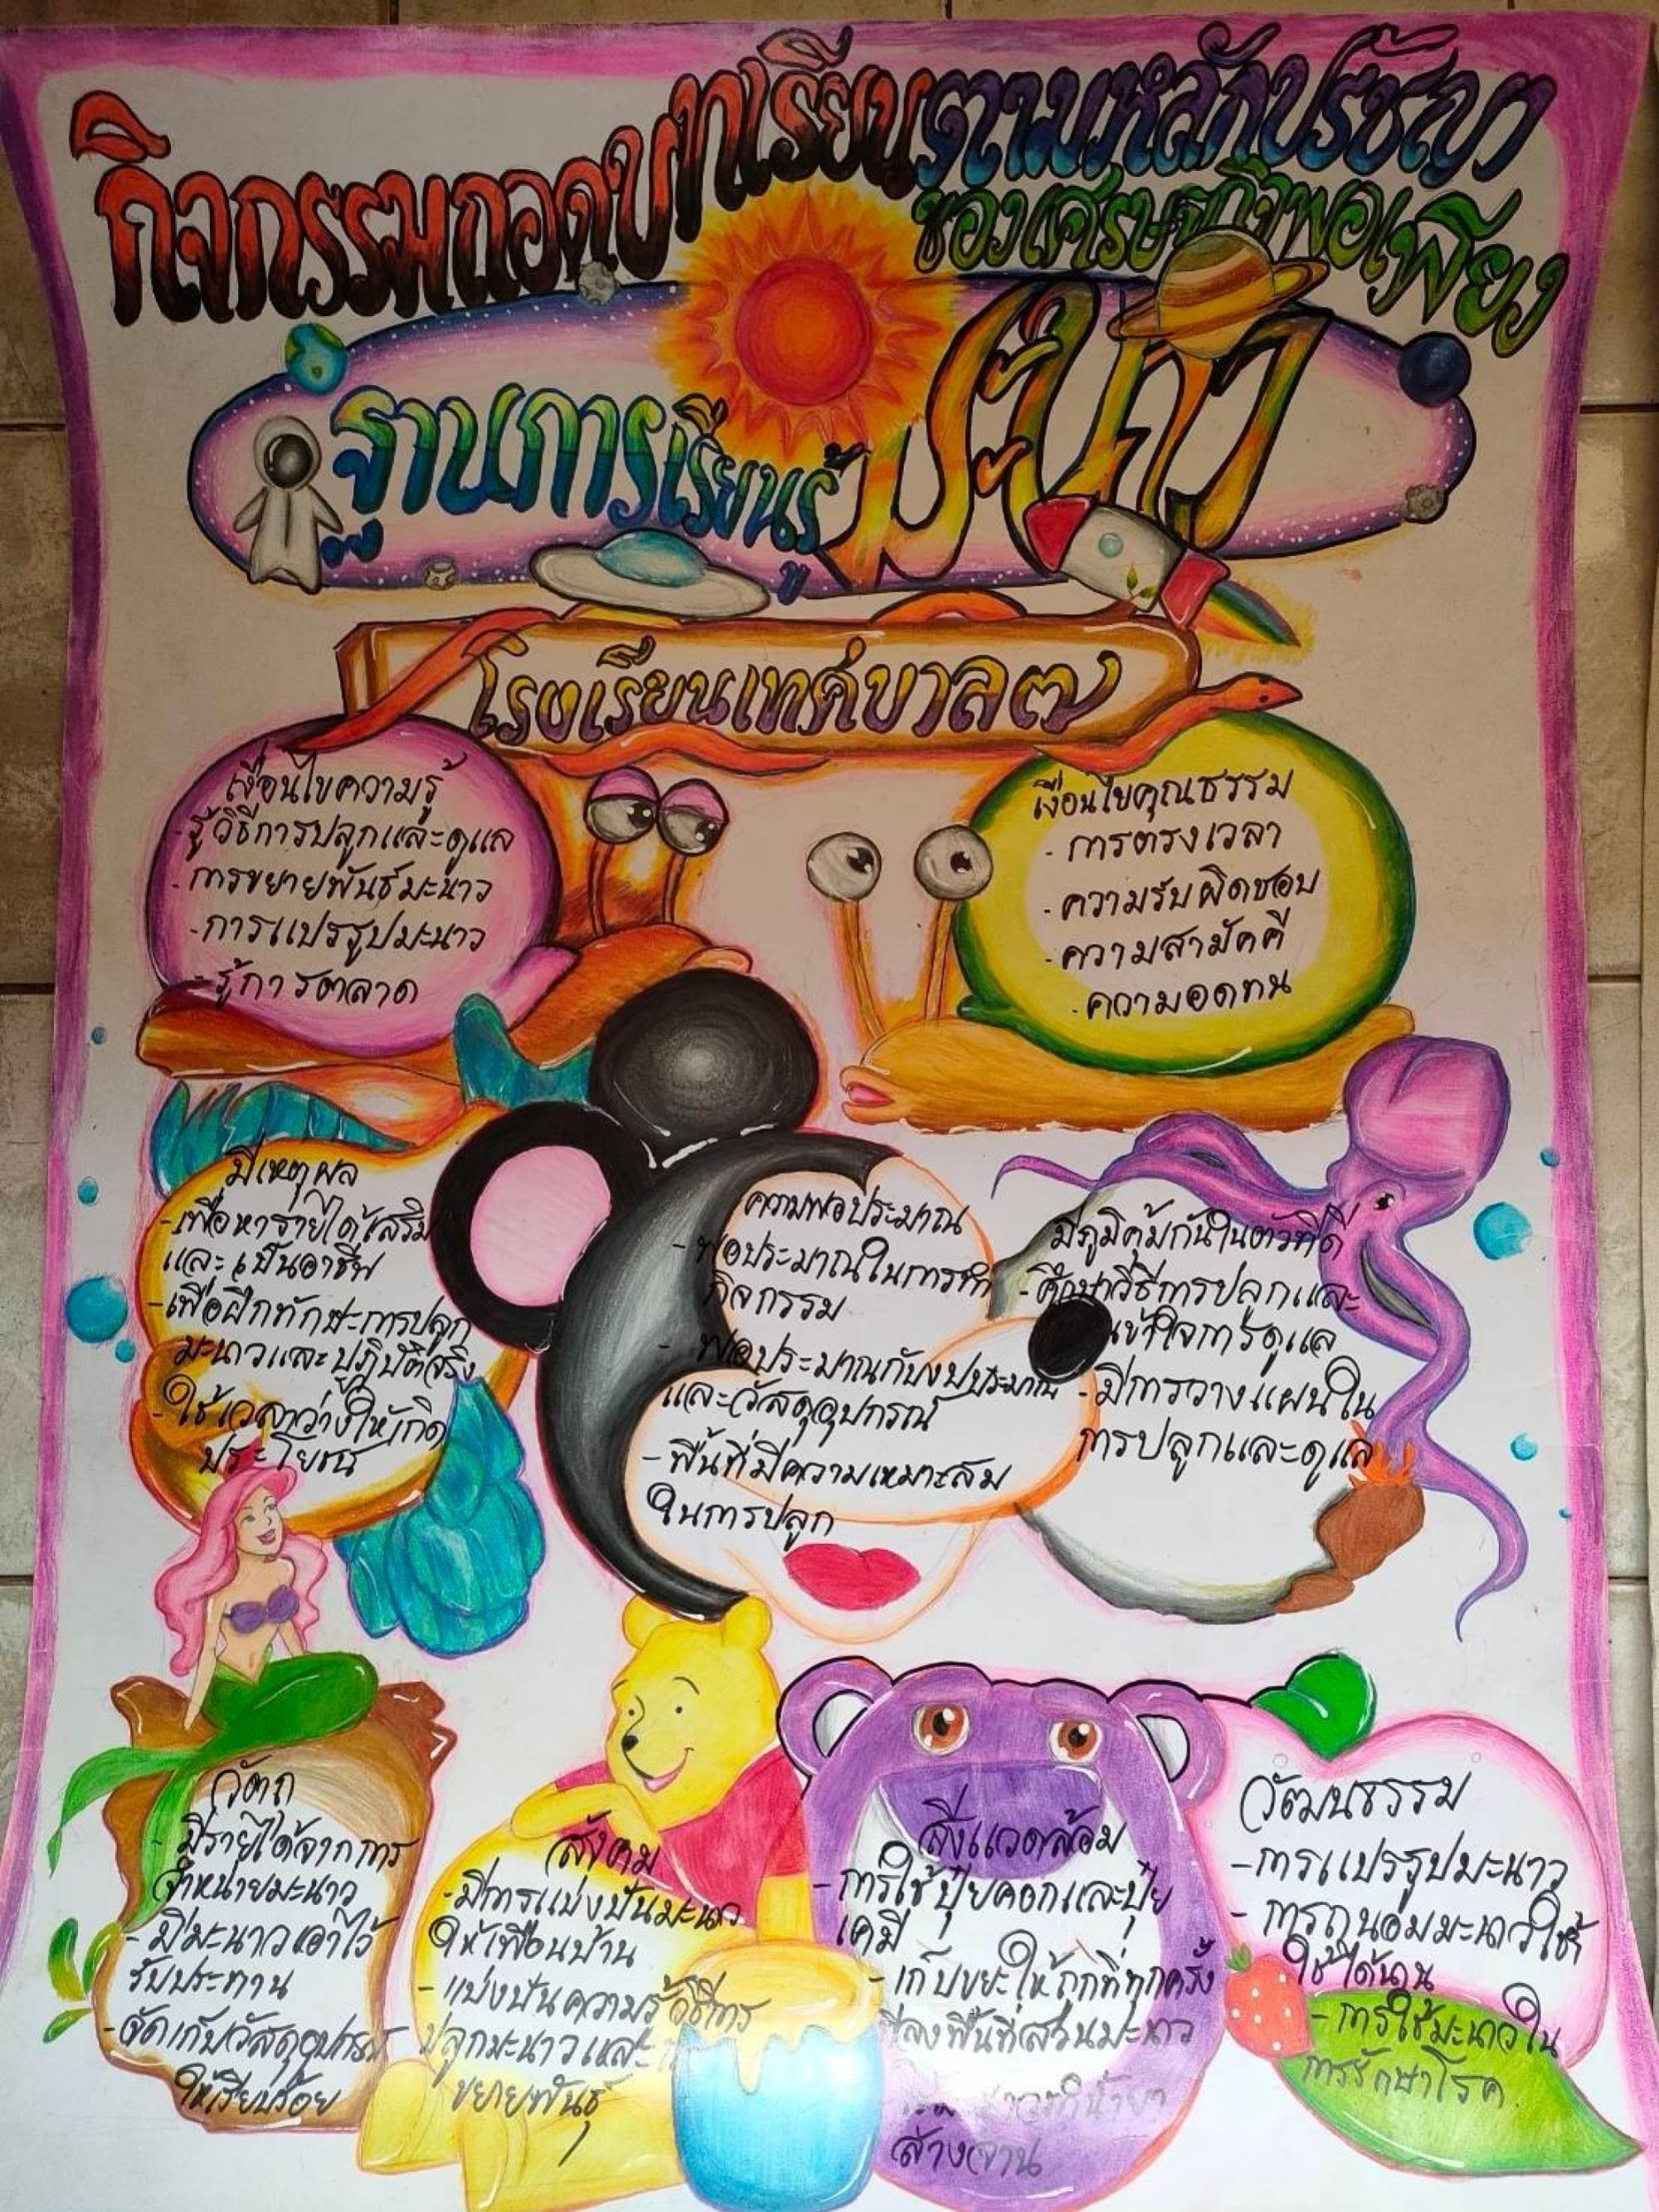 กิจกรรมถอดบทเรียนตามหลักปรัชญา
ของเศรษฐกิจพอเพียง
ฐานการเรียนรู้ มะนาว
โรงเรียนเทศบาล ๗
เงื่อนไขความรู้
- รู้วิธีการปลูกและดูแล
- การขยายพันธ์มะนาว
- การแปรรูปมะนาว
- รู้การตลาด
เงื่อนไขคุณธรรม
- การตรงเวลา
- ความรับผิดชอบ
- ความสามัคคี
- ความอดทน
มีเหตุผล
- เพื่อหารายได้เสริม
และเป็นอาชีพ
- เพื่อฝึกทักษะการปลูก
มะนาวและปฏิบัติจริง
- ใช้เวลาว่างให้เกิด
ประโยชน์
ความพอประมาณ
- พอประมาณในการทำ
กิจกรรม
- พอประมาณกับงบประมาณ
และวัสดุอุปกรณ์
- พื้นที่มีความเหมาะสม
ในการปลูก
มีภูมิคุ้มกันในตัวที่ดี
- ศึกษาวิธีการปลูกและ
เข้าใจการดูแล
- มีการวางแผนใน
การปลูกและดูแล
วัตถุ
- มีรายได้จากการ
จำหน่ายมะนาว
- มีมะนาวเอาไว้
รับประทาน
- จัดเก็บวัสดุอุปกรณ์
ให้เรียบร้อย
สังคม
- มีการแบ่งปันมะนาว
ให้เพื่อนบ้าน
- แบ่งปันความรู้วิธีการ
ปลูกมะนาวและ
ขยายพันธุ์
สิ่งแวดล้อม
- การใช้ปุ๋ยคอกและปุ๋ย
เคมี
- เก็บขยะให้ถูกที่ทุกครั้ง
ที่ลงพื้นที่สวนมะนาว
น้ำยา
ล้างจาน
วัฒนธรรม
- การแปรรูปมะนาว
- การถนอมมะนาวให้
ใช้ได้นาน
- การใช้มะนาวใน
การรักษาโรค